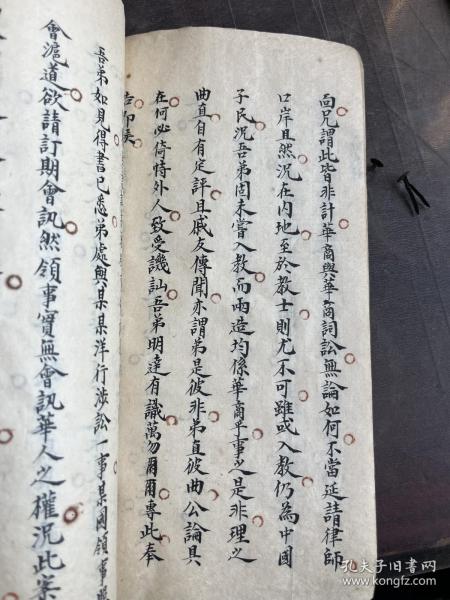 向兄謂此皆非計華商與華商詞訟無論如何不當延請律師
口岸且然況在內地至於教士則尤不可雖或入教仍為中國
子民況吾弟固未嘗入教而兩造均係華商乎事之是非理之
曲直自有定評且戚友傳聞亦謂弟是彼非弟直彼曲公論具
在何必倚恃外人致受譏訕吾弟明達有識萬勿爾爾專此奉
吾弟如見得書已悉弟處與某某洋行涉訟一事某國領事
會滬道欲請訂期會訊然領事實無會訊華人之權況此案
孔夫子旧书网